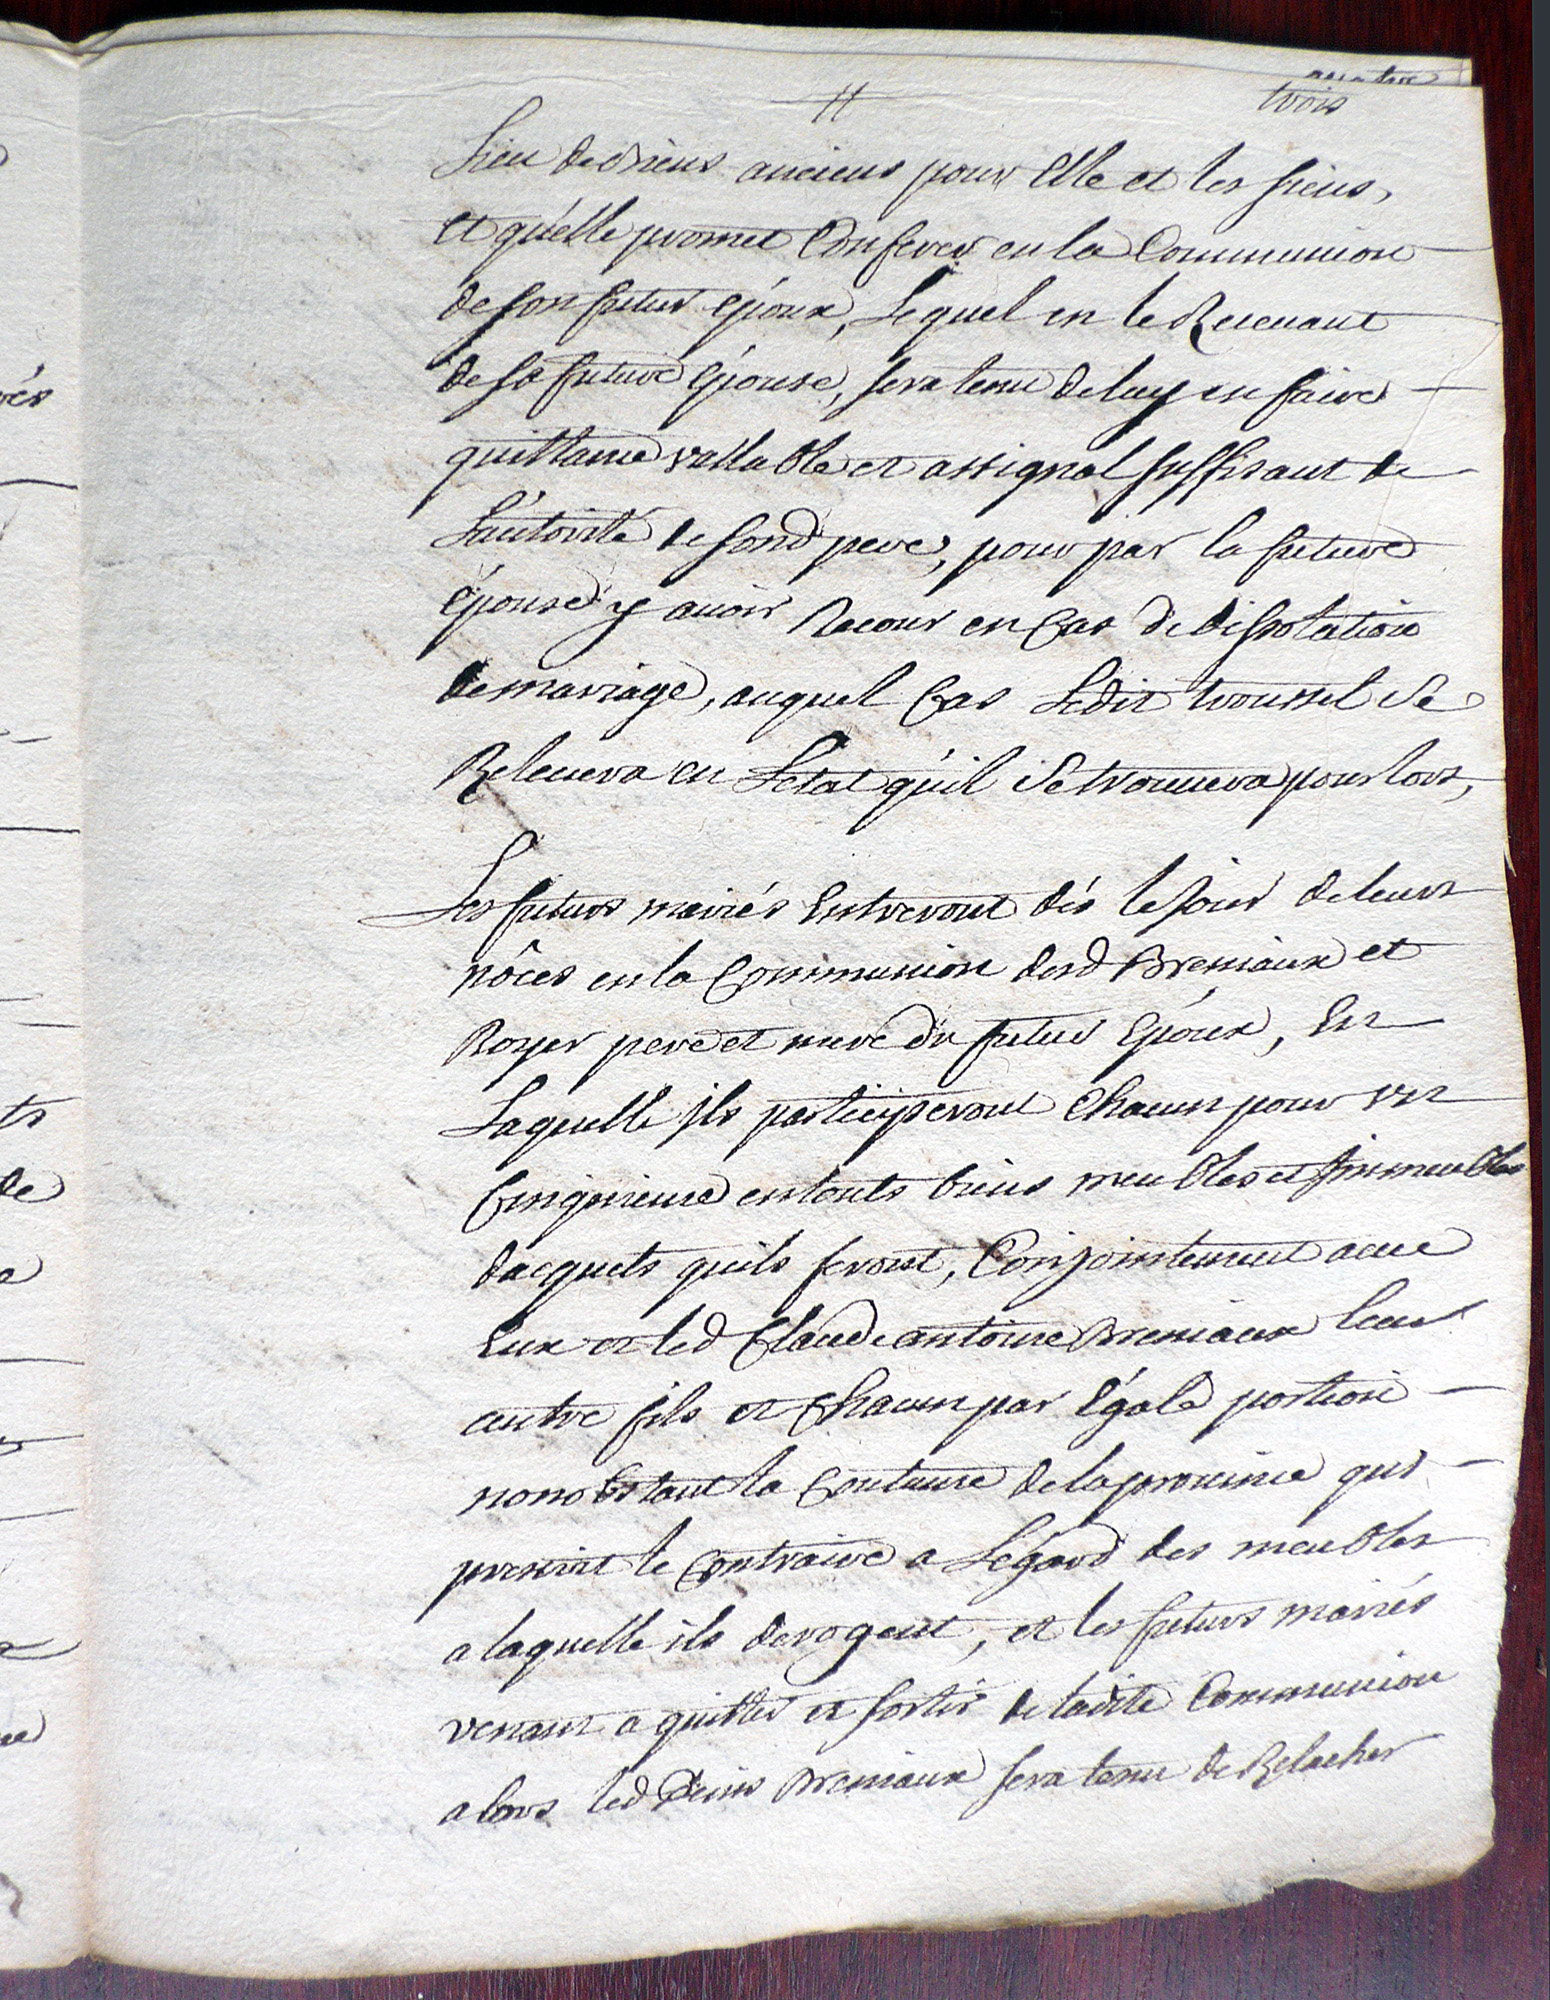 quatre
trois
Lieu de biens anciens pour Elle et les siens,
et qu'elle promet Conferer en la Communion
de son futur Epoux, Lequel en le Recevant
de sa future Epouse, sera tenu de luy en faire
quittance vallable et assignal suffisant de
L'autorité de sond pere, pour par la future
Epouse y avoir Recour en Cas de dissolation
de mariage, auquel Cas Ledit troussel Se
Relevera en L'etat qu'il Se trouvera pour lors,
Les futurs mariés Entreront dés le Jour de leurs
nôces en la Communion desd Breniaux et
Royer pere et mere du futur Epoux, En
Laquelle ils participeront Chacun pour un
Cinquieme en touts biens meubles et Immeubles
dacquets quils feront, Conjointement avec
Eux et led Claude antoine Breniaux leur
autre fils et Chacun par Egale portion
nonobstant la Coutume de la province qui
prescrit le Contraire a L'egard des meubles
a laquelle ils derogent, et les futurs mariés
venant a quitter et sortir de ladite Communion
alors led Denis Breniaux sera tenu de Relacher